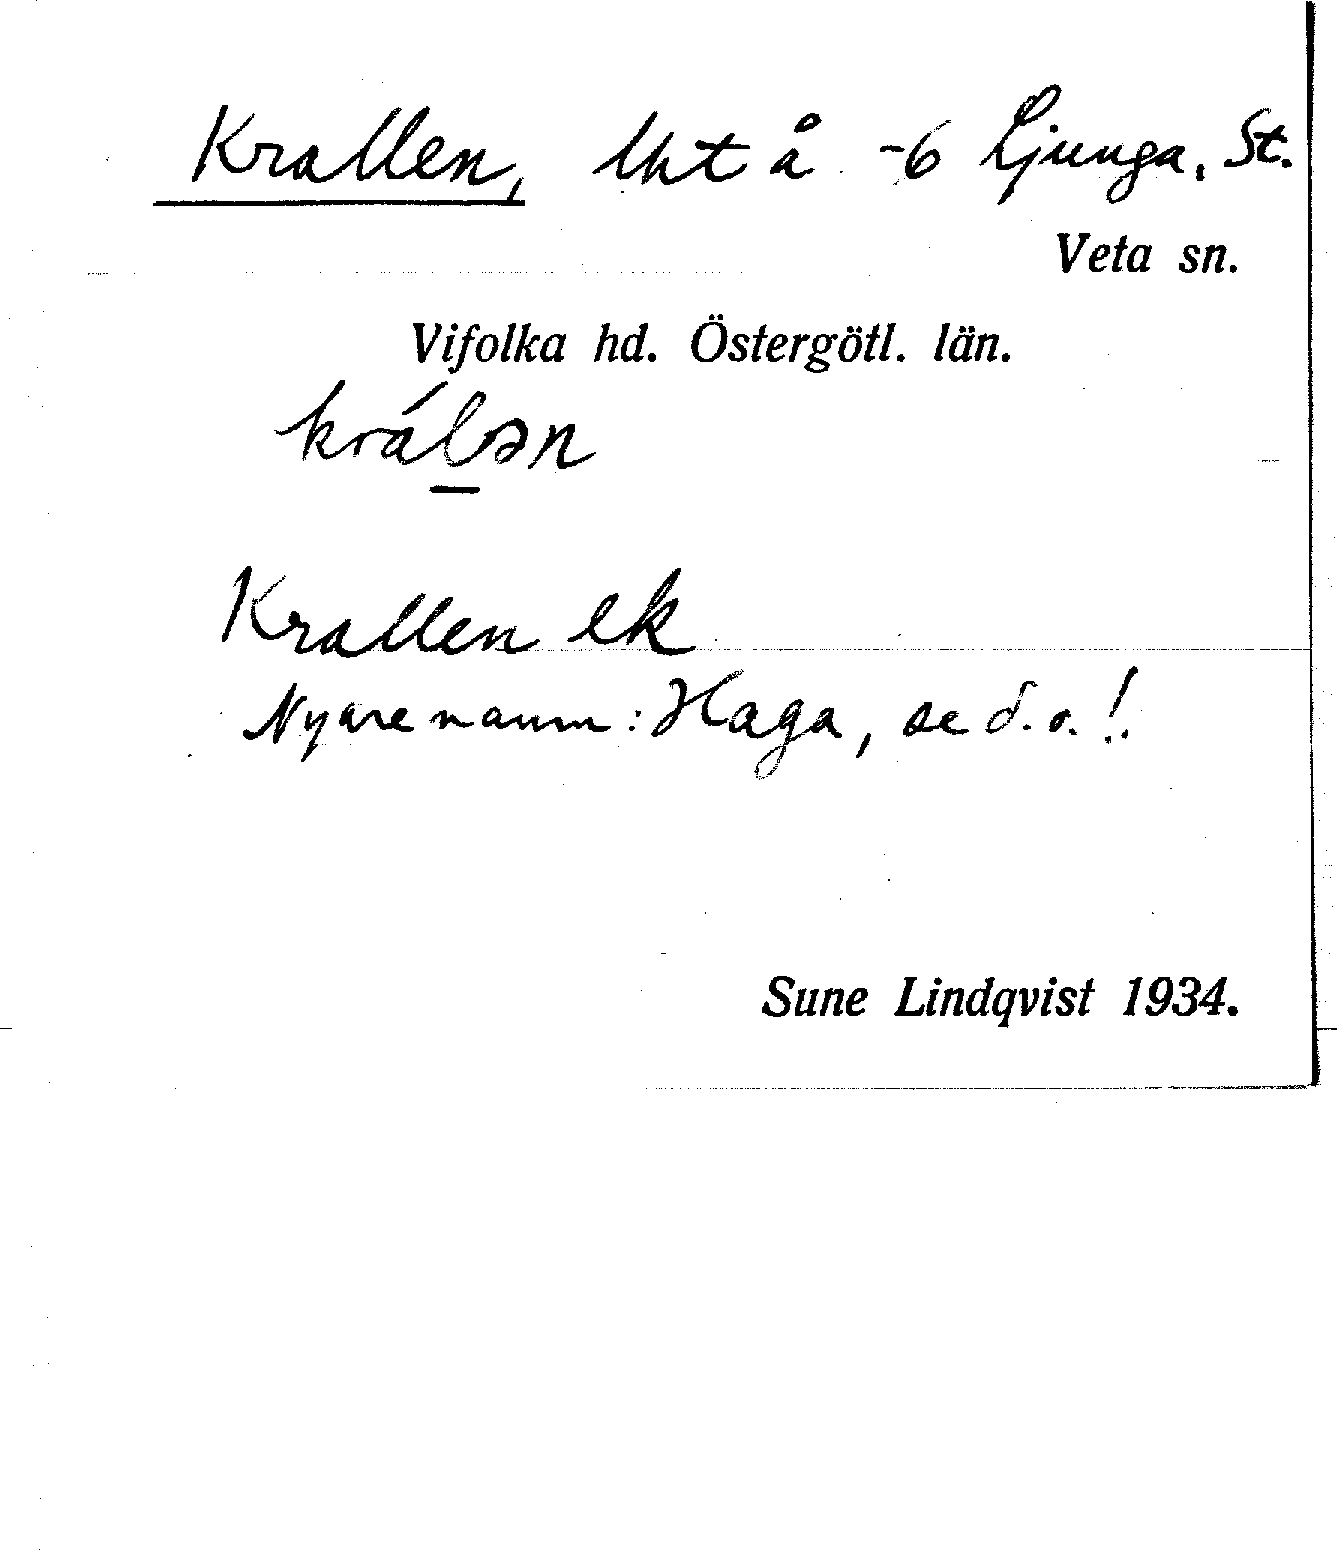 Krallen, lht å -6 Ljunga, St.
Veta sn.
Vifolka hd. Östergötl. län.
králən
Krallen ek
Nyare namn: Haga, se d. o.!
Sune Lindqvist 1934.